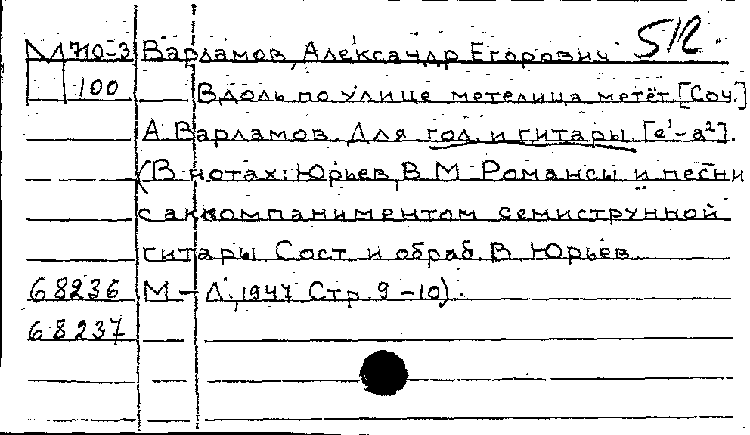 М710-3 Варламов, Александр Егорович 512.
100 Вдоль по улице метелица метёт. [Соч.]
А. Варламов. Для гол. и гитары [e¹-a²].
(В нотах: Юрьев, В. М. Романсы и песни
с аккомпаниментом семиструнной
гитары. Сост. и обраб. В. Юрьев.
68236 М-Л., 1947 Стр. 9-10).
68237